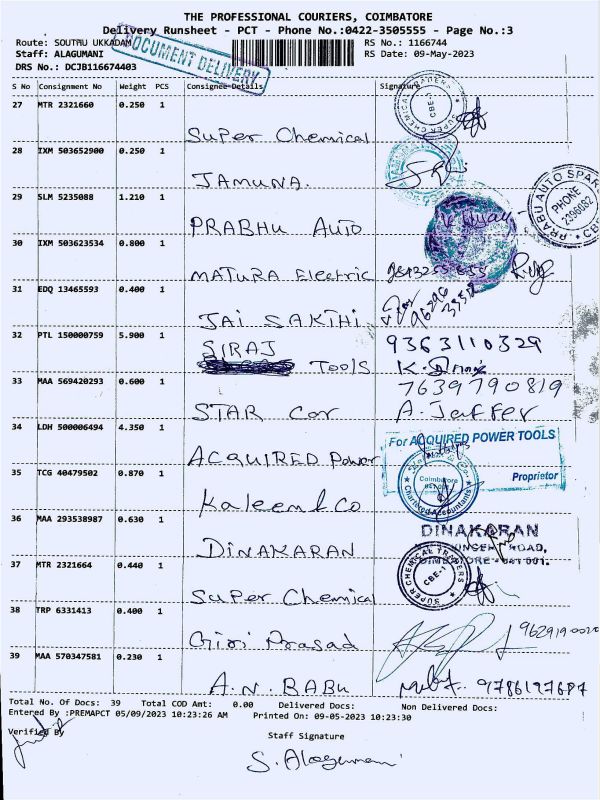 THE PROFESSIONAL COURIERS, COIMBATORE
Delivery Runsheet - PCT - Phone No.:0422-3505555 - Page No.:3
Route: SOUTHU UKKADAM
RS No.: 1166744
Staff: ALAGUMANI
RS Date: 09-May-2023
DRS No.: DCJB116674403
DOCUMENT DELIVERY
S No Consignment No Weight PCS Consignee Details Signature
27 MTR 2321660 0.250 1
Super Chemical
SUPER CHEMICAL TRADERS CBE-1
28 IXM 503652900 0.250 1
JAMUNA.
29 SLM 5235088 1.210 1
PRABHU AUTO
PRABU AUTO SPAR
PHONE
2396682
30 IXM 503623534 0.800 1
MATURA Electric
31 EDQ 13465593 0.400 1
JAI SAKTHI
32 PTL 150000759 5.900 1
SIRAJ
TOOLS
9363110329
33 MAA 569420293 0.600 1
7639790819
STAR Cor A. Jaffer
34 LDH 500006494 4.350 1
ACQUIRED Power
For ACQUIRED POWER TOOLS
Proprietor
35 TCG 40479502 0.870 1
Kaleem & Co
Coimbatore
Chartered Accountants
36 MAA 293538987 0.630 1
DINAKARAN
DINAKARAN
ROAD,
641 001.
37 MTR 2321664 0.440 1
Super Chemical
SUPER CHEMICAL TRADERS CBE-1
38 TRP 6331413 0.400 1
Giri Prasad
39 MAA 570347581 0.230 1
A.N. BABU
9786197687
Total No. Of Docs: 39 Total COD Amt: 0.00 Delivered Docs: Non Delivered Docs:
Entered By :PREMAPCT 05/09/2023 10:23:26 AM Printed On: 09-05-2023 10:23:30
Verified By
Staff Signature
S. Alagumani